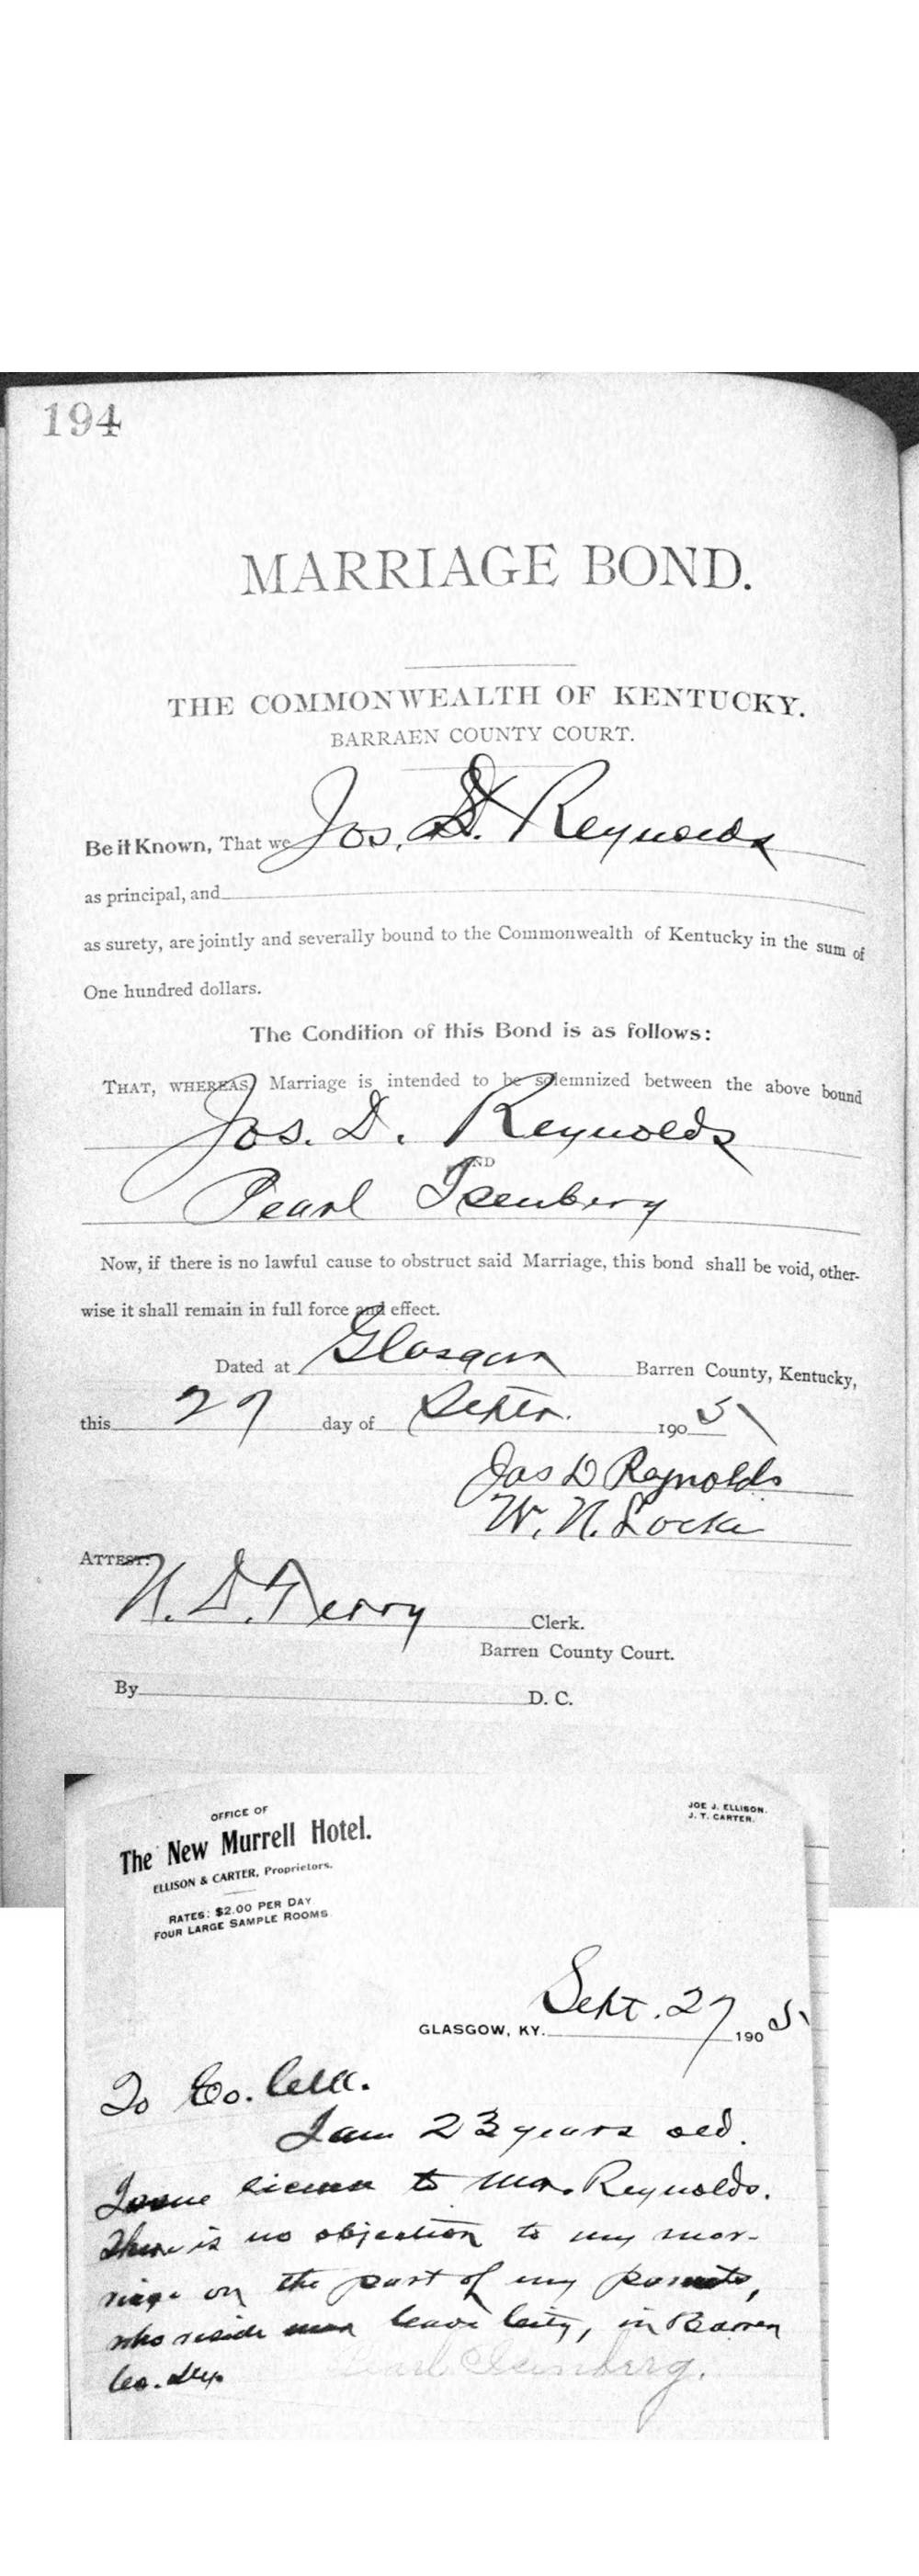 194
MARRIAGE BOND.
THE COMMONWEALTH OF KENTUCKY.
BARRAEN COUNTY COURT.
Be it Known, That we Jos. D. Reynolds
as principal, and
as surety, are jointly and severally bound to the Commonwealth of Kentucky in the sum of
One hundred dollars.
The Condition of this Bond is as follows:
THAT, WHEREAS, Marriage is intended to be solemnized between the above bound
Jos. D. Reynolds
AND
Pearl Isenberg
Now, if there is no lawful cause to obstruct said Marriage, this bond shall be void, other-
wise it shall remain in full force and effect.
Dated at Glasgow Barren County, Kentucky,
this 27 day of Septr. 1905
Jos D Reynolds
W. N. Locke
ATTEST:
N. D. Terry Clerk.
Barren County Court.
By D. C.
OFFICE OF
The New Murrell Hotel.
ELLISON & CARTER, Proprietors.
RATES: $2.00 PER DAY
FOUR LARGE SAMPLE ROOMS.
JOE J. ELLISON.
J. T. CARTER.
Sept. 27
GLASGOW, KY. 1905
To Co. Clk.
I am 23 years old.
Issue license to Mr. Reynolds.
There is no objection to my mar-
riage on the part of my parents,
who reside near Cave City, in Barren
Co. Ky.
Pearl Isenberg.